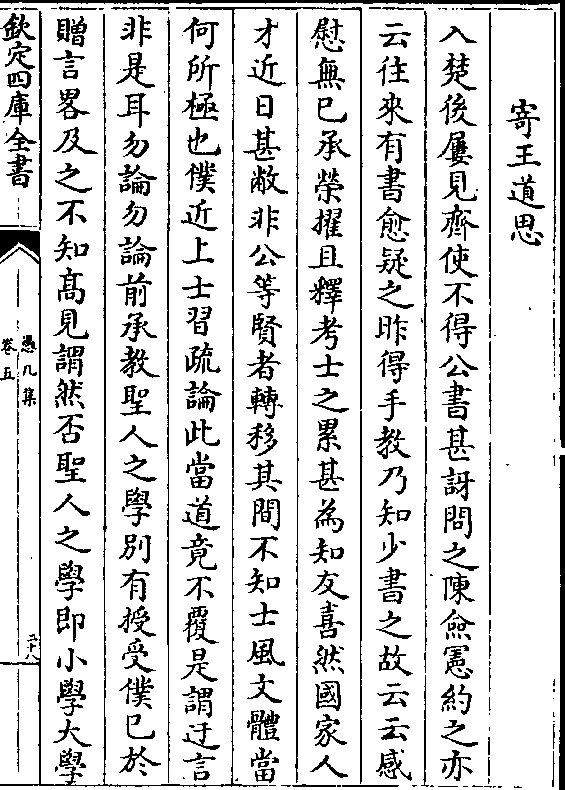 寄王道思
入楚後屢見齊使不得公書甚訝問之陳僉憲約之亦
云往來有書愈疑之昨得手教乃知少書之故云云感
慰無已承榮擢且釋考士之累甚為知友喜然國家人
才近日甚敝非公等賢者轉移其間不知士風文體當
何所極也僕近上士習疏論此當道竟不覆是謂迂言
非是耳勿論勿論前承教聖人之學別有授受僕已於
贈言畧及之不知髙見謂然否聖人之學即小學大學
欽定四庫全書
愚凡集
卷五
二十八